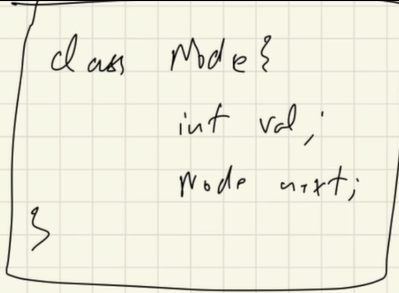 class Node{
int val;
Node next;
}